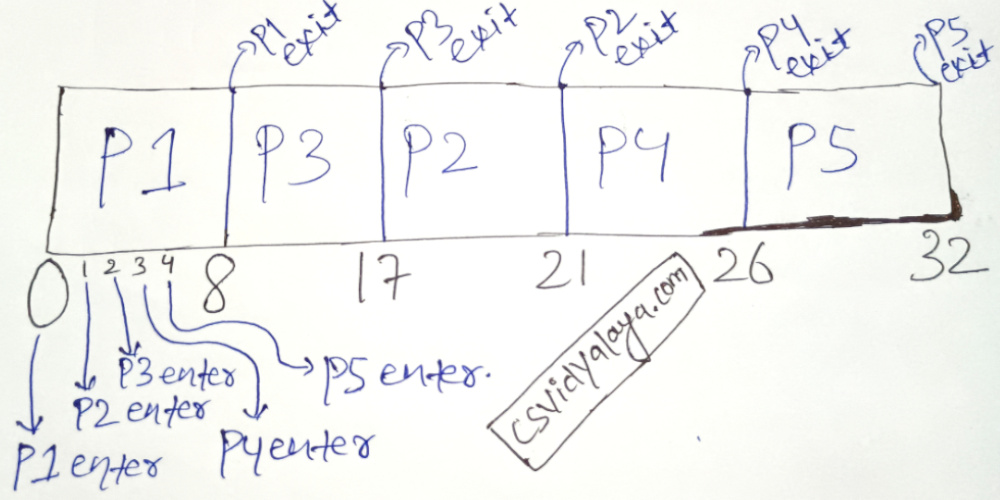 P1 exit
P3 exit
P2 exit
P4 exit
P5 exit
P1 P3 P2 P4 P5
0 1 2 3 4 8 17 21 26 32
P3 enter
P5 enter.
P2 enter
P4 enter
P1 enter
csvidyalaya.com